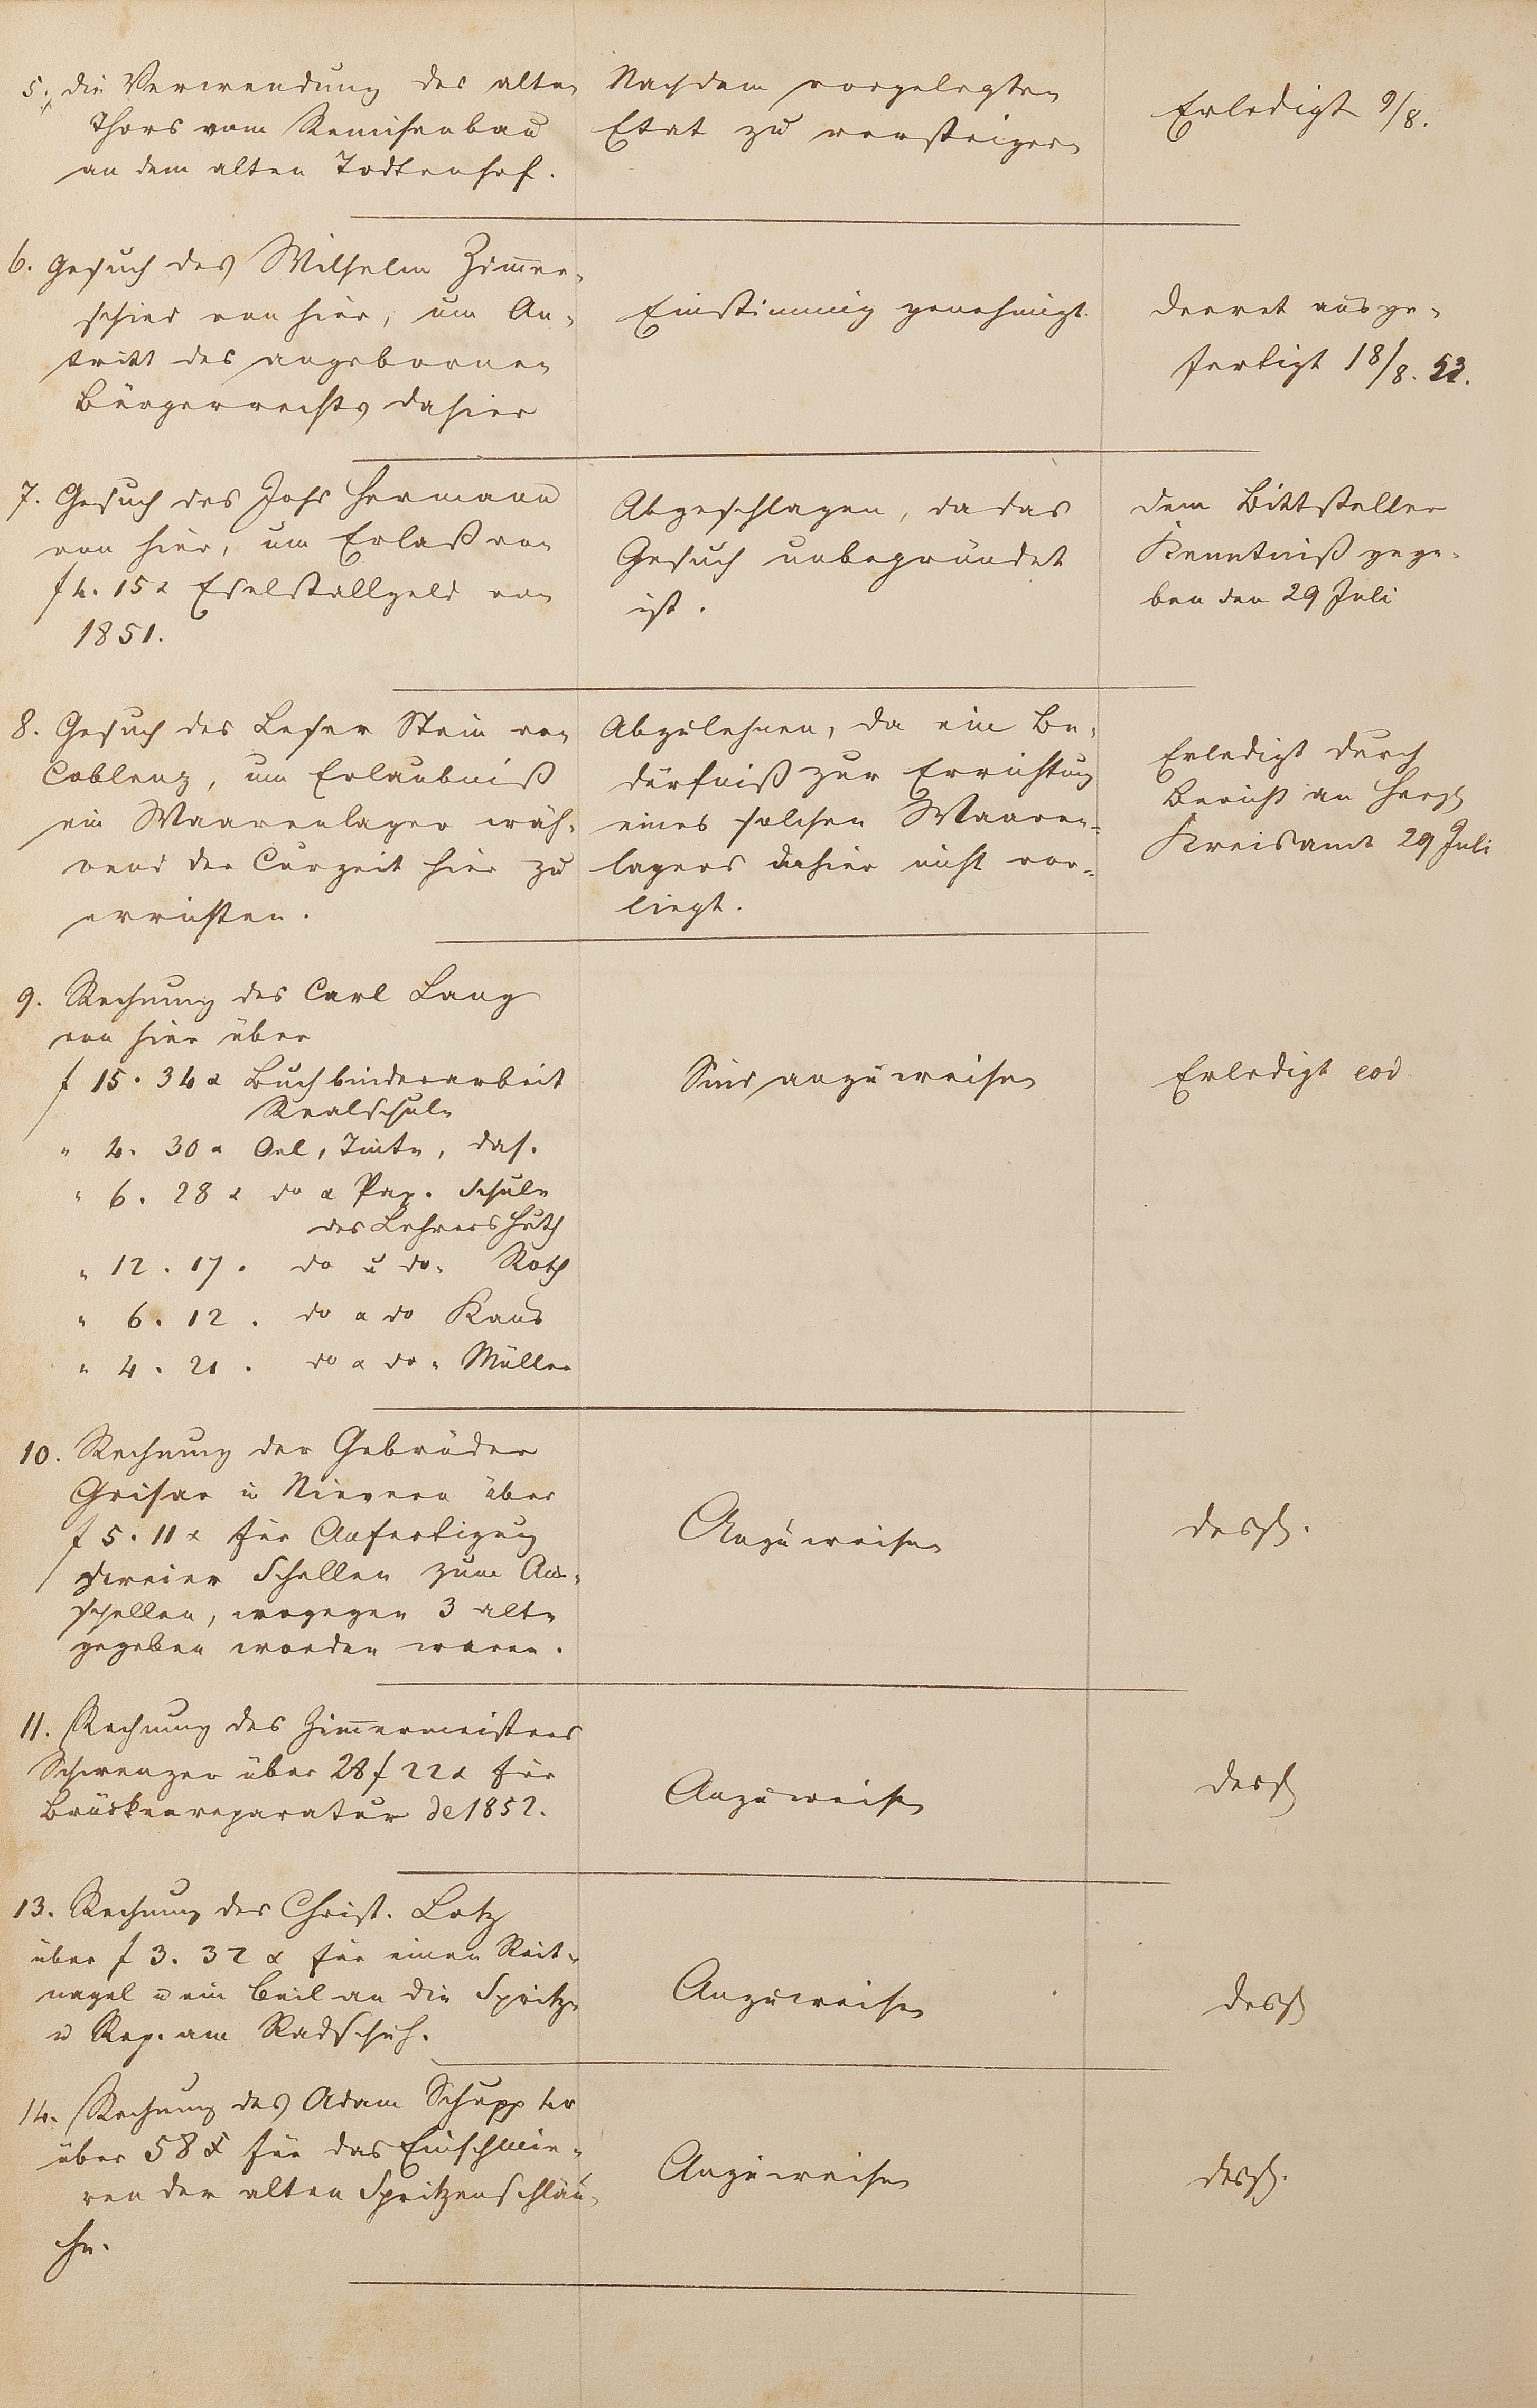 5. die Verwendung des alten
Thors vom Remisenbau
an dem alten Todtenhof.
Nach dem vorgelegten
Etat zu versteigern
Erledigt 9/8.
6. Gesuch des Wilhelm Zimmer-
schied von hier, um An-
tritt des angebornen
Bürgerrechts dahier
Einstimmig genehmigt.
Decret ausge-
fertigt 18/8. 53.
7. Gesuch des Johs Hermann
von hier, um Erlaß von
f 4. 15 x Eselstallgeld von
1851.
Abgeschlagen, da das
Gesuch unbegründet
ist.
dem Bittsteller
Kenntniß gege-
ben den 29 Juli
8. Gesuch des Leser Stein von
Coblenz, um Erlaubniß
ein Waarenlager wäh-
rend der Curzeit hier zu
errichten.
Abzulehnen, da ein Be-
dürfniß zur Errichtung
eines solchen Waaren-
lagers dahier nicht vor-
liegt.
Erledigt durch
Bericht an Herzgl
Kreisamt 29 Juli
9. Rechnung des Carl Lang
von hier über
f 15. 34 x Buchbinderarbeit
Realschule
" 4. 30 x Oel, Tinte, das.
" 6. 28 x do & Pap. Schule
des Lehrers Huth
" 12. 17. do u do. Roth
" 6. 12. do & do Kaus
" 4. 21. do & do " Müller
Sind anzuweisen
Erledigt eod
10. Rechnung der Gebrüder
Grisar in Nievern über
f 5. 11 x für Anfertigung
zweier Schellen zum Aus-
schellen, wogegen 3 alte
gegeben worden waren.
Anzuweisen
desgl.
11. Rechnung des Zimmermeisters
Schwenzer über 28 f 22 x für
Brückenreparatur de 1852.
Anzuweisen
desgl
13. Rechnung des Christ. Lotz
über f 3. 32 x für einen Reit-
nagel u ein Beil an die Spritze
u Rep. am Radschuh.
Anzuweisen
desgl
14. Rechnung des Adam Schupp ter
über 58 x für das Einschmie-
ren der alten Spritzenschläu-
che.
Anzuweisen
desgl.